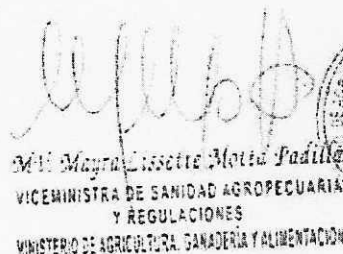 M.V. Mayra Lissette Motta Padilla
VICEMINISTRA DE SANIDAD AGROPECUARIA
Y REGULACIONES
MINISTERIO DE AGRICULTURA, GANADERÍA Y ALIMENTACIÓN